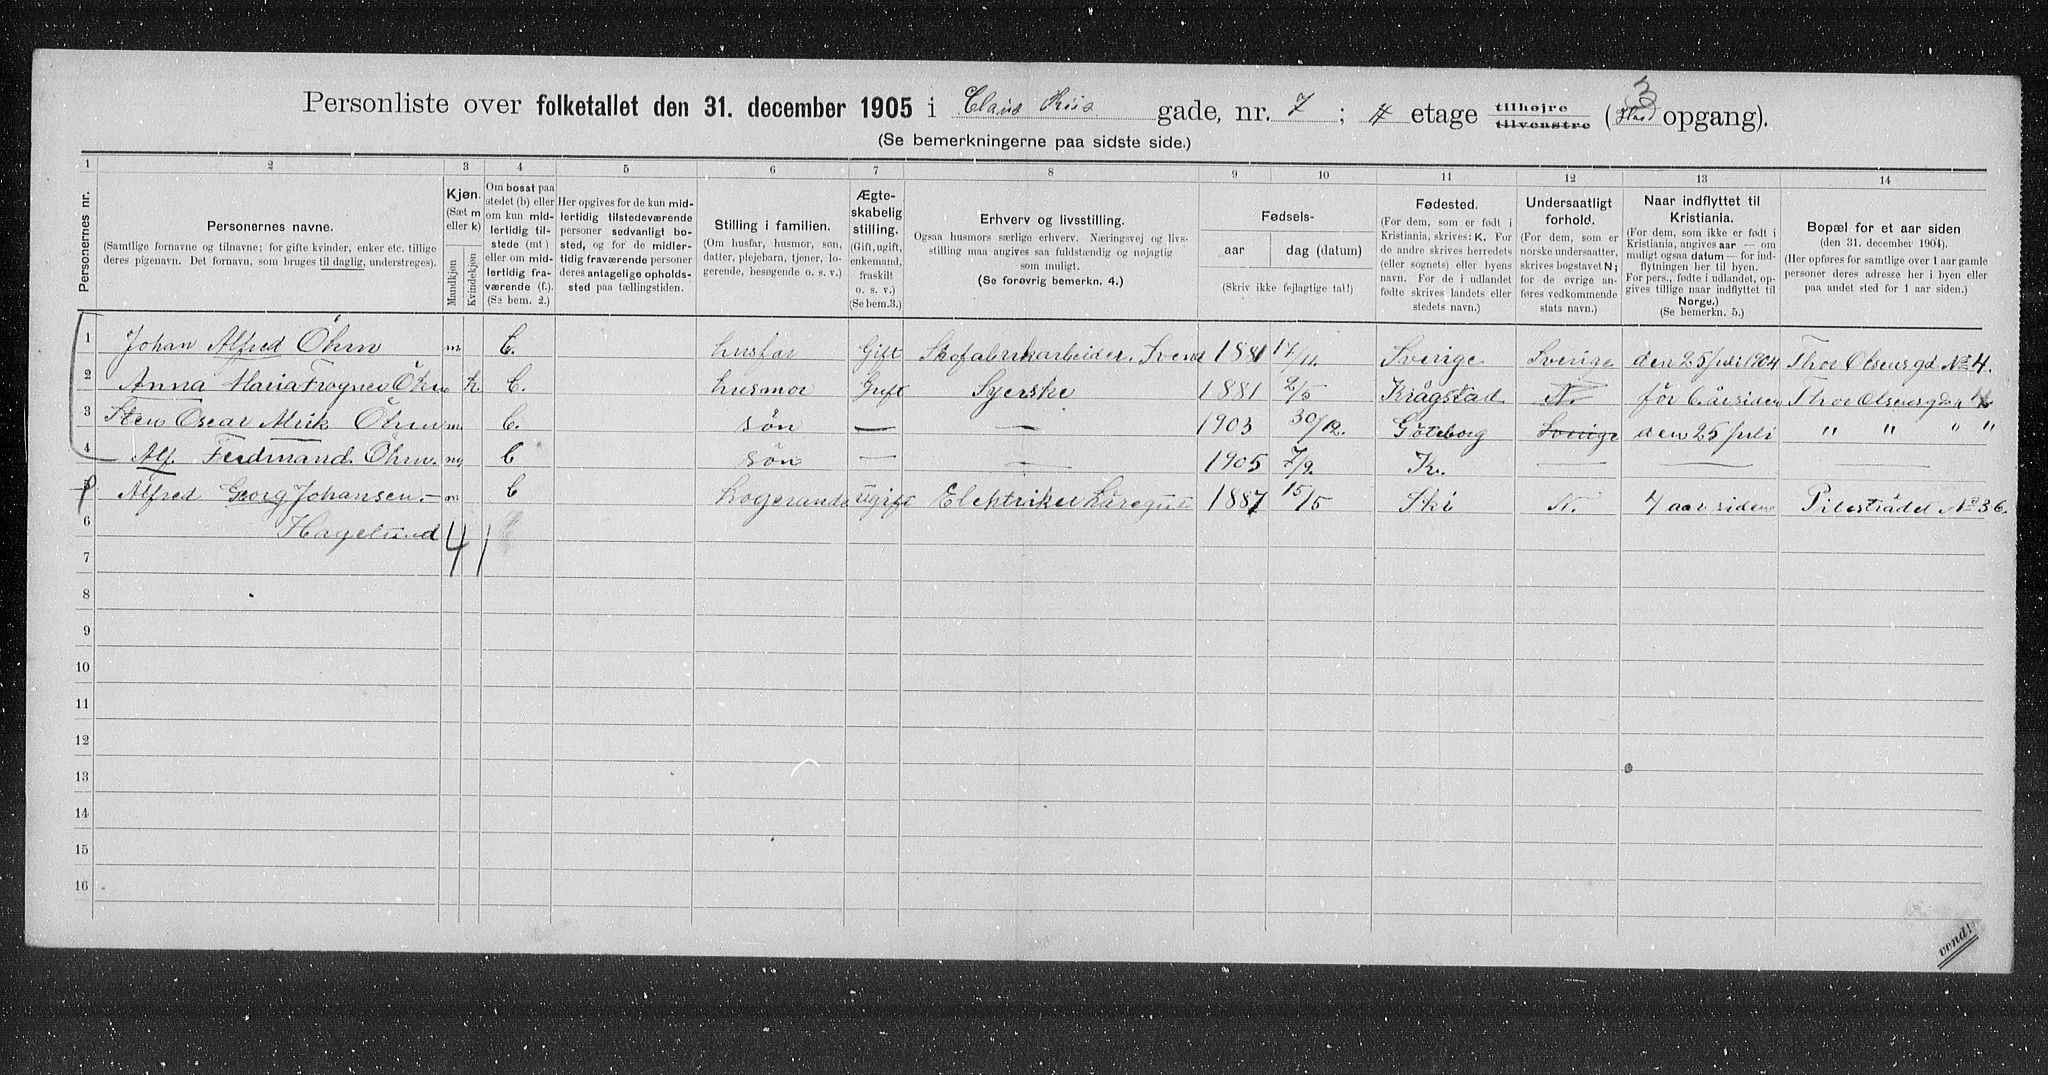 Personliste over folketallet den 31. december 1905 i Claus Riis gade, nr. 7 ; 4 etage tilhøjre tilvenstre ( 3 opgang).
(Se bemerkningerne paa sidste side.)
1 2 3 4 5 6 7 8 9 10 11 12 13 14
Personernes nr.
Personernes navne.
(Samtlige fornavne og tilnavne; for gifte kvinder, enker etc. tillige deres pigenavn. Det fornavn, som bruges til daglig, understreges).
Kjøn.
(Sæt m eller k)
Mandkjøn
Kvindekjøn
Om bosat paa stedet (b) eller om kun midlertidig tilstede (mt) eller om midlertidig fraværende (f.). (Se bem. 2.)
Her opgives for de kun midlertidig tilstedeværende personer sedvanligt bosted, og for de midlertidig fraværende personer deres antagelige opholdssted paa tællingstiden.
Stilling i familien.
(Om husfar, husmor, son, datter, plejebarn, tjener, logerende, besøgende o. s. v.)
Ægteskabelig stilling.
(Gift, ugift, enkemand, fraskilt o. s. v.)
(Se bem.3.)
Erhverv og livsstilling.
Ogsaa husmors særlige erhverv. Næringsvej og livsstilling maa angives saa fuldstændig og nøjagtig som muligt.
(Se forøvrig bemerkn. 4.)
Fødsels-
aar
dag (datum)
(Skriv ikke fejlagtige tal!)
Fødested.
(For dem, som er født i Kristiania, skrives: K. For de andre skrives herredets (eller sognets) eller byens navn. For de i udlandet fødte skrives landets eller stedets navn.)
Undersaatligt forhold.
(For dem, som er norske undersaatter, skrives bogstavet N; for de øvrige anføres vedkommende stats navn.)
Naar indflyttet til Kristiania.
(For dem, som ikke er født i Kristiania, angives aar — om muligt ogsaa datum — for indflytningen her til byen. For pers., fødte i udlandet, opgives tillige naar indflyttet til Norge.)
(Se bemerkn. 5.)
Bopæl for et aar siden
(den 31. december 1904).
(Her opføres for samtlige over 1 aar gamle personer deres adresse her i byen eller paa andet sted for 1 aar siden.)
1 Johan Alfred Öhrn m b. husfar Gift Skofabrikarbeider Svend 1881 17/11 Sverige Sverige den 25 juli 1904 Thor Olsens gd No 4.
2 Anna Maria Frogner Öhrn k. b. husmor Gift Syerske 1881 2/5 Krågstad N. för 6 år siden Thor Olsens gd 4
3 Sten Oscar Alrik Öhrn m. b. søn — — 1903 30/12. Göteborg Sverige den 25 juli " " " "
4 Alf Ferdinand Öhrn. m b søn — — 1905 7/9. K. — — —
5 Alfred Georg Johansen - m b Logerande ugift Elektriker Läregut 1887 15/5 Ski N. 7 aar siden Pilestrædet No 36.
6 Hagelund 4 1
7
8
9
10
11
12
13
14
15
16
vend!